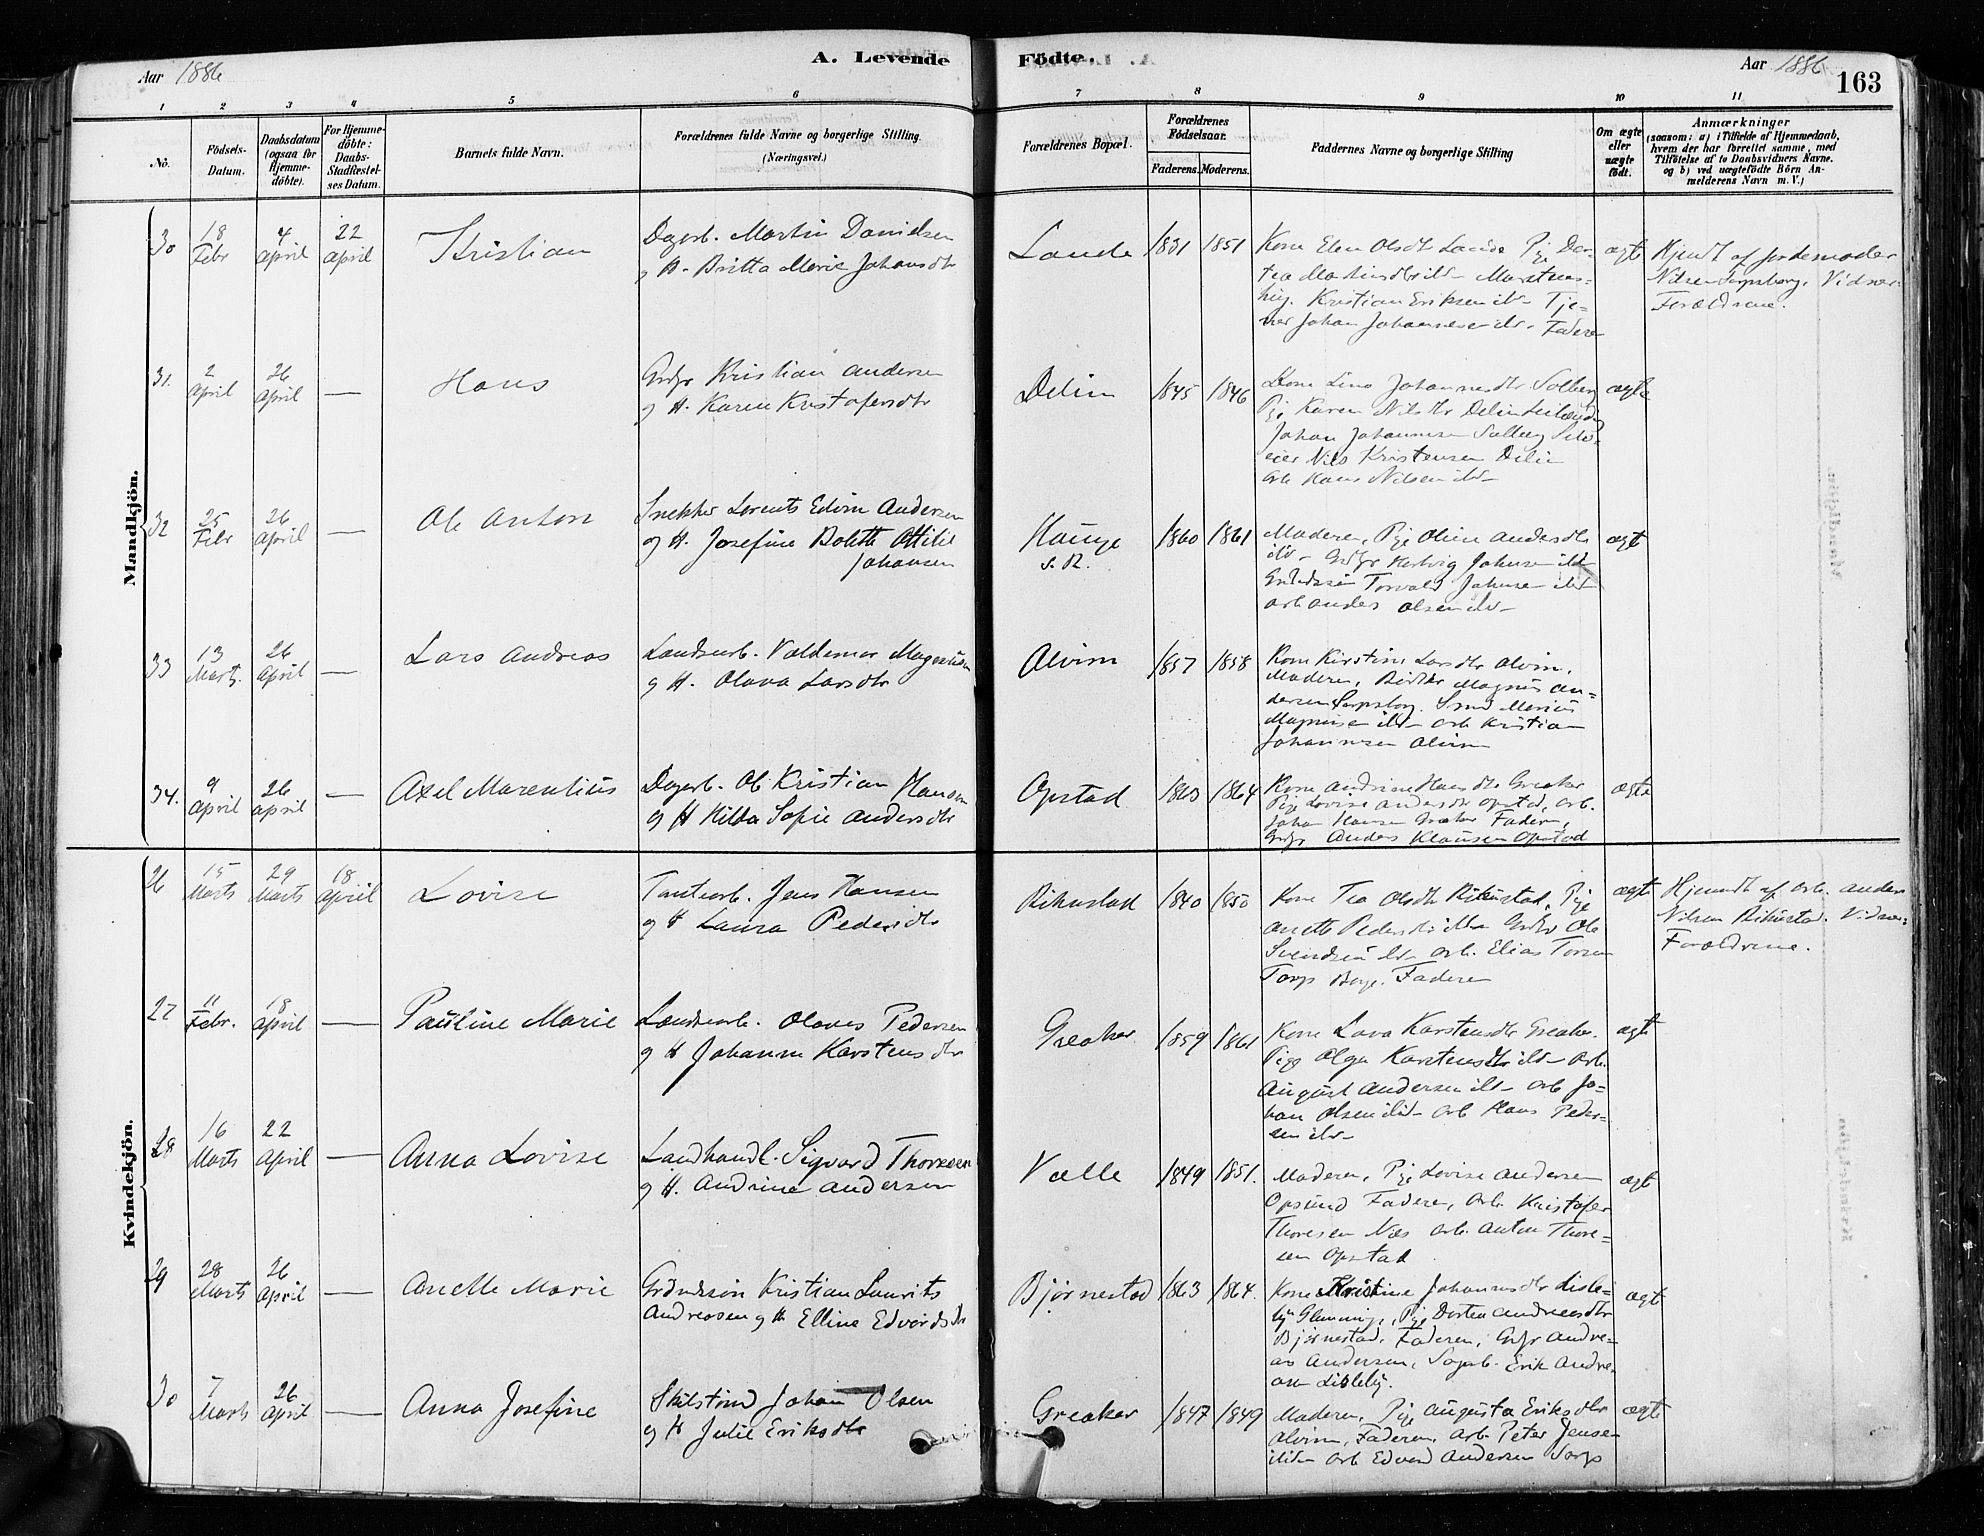 Aar 1886
A. Levende
Födte.
Aar 1886
163
1 2 3 4 5 6 7 8 9 10 11
No.
Födsels-
Datum.
Daabsdatum
(ogsaa for
Hjemme-
döbte).
For Hjemme-
döbte:
Daabs-
Stadfæstel-
ses Datum.
Barnets fulde Navn.
Forældrenes fulde Navne og borgerlige Stilling
(Næringsvei.)
Forældrenes Bopæl.
Forældrenes
Födselsaar.
Faderens. Moderens.
Faddernes Navne og borgerlige Stilling
Om ægte
eller
uægte
födt.
Anmærkninger
(saasom: a) i Tilfælde af Hjemmedaab,
hvem der har forrettet samme, med
Tilföielse af to Daabsvidners Navne.
og b) ved uægtefödte Börn An-
melderens Navn m. V.)
Mandkjön.
30 18 Febr 4 April 22 April
Kristian
Dagarb. Martin Danielsen
og H. Britta Marie Johansdtr
Lande
1831 1851
Kone Elen Olsdtr Lande Pige Dor-
tea Martinsdtr ibd
Kristian Eriksen ibd- Tje-
ner Johan Johannesen ibd- Faderen
ægte
Hjemdt af Jordemoder
Nilsen Sarpsborg. Vidner:
Forældrene.
31. 2 April 26 April —
Hans
Grdbr Kristian Andersen
og H. Karen Kristofersdtr
Delin
1845 1846
Kone Lina Johannesdtr Solberg
Pige Karen Nilsdtr Delin
Johan Johannesen Solberg Selv-
eier Nils Kristensen Delin
Arb Hans Nilsen ibd-
ægte
32 25 Febr 26 April —
Ole Anton
Snekker Lorents Edvin Andersen
og H. Josefine Bolette Ottilie
Johansen
Hauge
s. R.
1860 1861
Moderen, Pige Oline Andersdtr
ibd- Grdbr Hartvig Johnsen ibd
Grdssøn Torvald Johnsen ibd
Arb Anders Olsen ibd-
ægt
33 13 Marts 26 April —
Lars Andreas
Landarb. Valdemar Magnusen
og H. Olava Larsdtr
Alvim
1857 1858
Kone Kirstine Larsdtr Alvim,
Moderen, Magnus An=
dersen Sarpsborg. Smed Marius
Magnusen ibd- Arb Kristian
Johannesen Alvim
34. 9 April 26 April —
Axel Marentius
Dagarb. Ole Kristian Hansen
og H Hilda Sofie Andersdtr
Opstad
1863 1864
Kone Andrine Hansdtr Greaker
Pige Lovise Andersdtr Opstad, Arb.
Johan Hansen Greaker Faderen,
Grdbr Anders Klausen Opstad
ægte
Kvindekjön.
26 15 Marts 29 Marts 18 April
Lovise
Tomtearb. Jens Hansen
og H Laura Pedersdtr
Rikustad
1840 1850
Kone Tea Olsdtr Rikustad, Pige
Anette Pedersdtr ibd Grdbr Ole
Svendsen ibd- Arb. Elias Torsen
Torp Borge. Faderen
ægte
Hjemdt af Arb. Anders
Nilsen Rikustad. Vidner:
Forældrene.
27 11 Febr. 18 April —
Pauline Marie
Landarb. Olaves Pedersen
og H Johanne Karstensdtr
Greaker
1859 1861
Kone Lava Karstensdtr Greaker.
Pige Olga Karstensdtr ibd- Arb.
August Andersen ibd- Arb Jo-
han Olsen ibd- Arb Hans Peder-
sen ibd-
ægte
28 16 Marts 22 April —
Anna Lovise
Landhandl. Sigvard Thoresen
og H. Andrine Andersen
Valle
1849 1851.
Moderen, Pige Lovise Andersen
Opsund Faderen, Arb. Kristofer
Thoresen Næs Arb. Anton Thore-
sen Opstad
ægt
29 28 Marts 26 April —
Anette Marie
Grdmdssøn Kristian Laurits
Andreasen og H. Elline Edvardsdtr
Bjørnestad
1863 1864.
Kone Kristine Johannesdtr Lisle-
by Glemminge, Pige Dortea Andreasdtr
Bjørnestad. Faderen, Grdbr Andre-
as Andersen, Sagarb. Erik Andre-
asen Lisleby.
ægt
30 7 Marts 26 April —
Anna Josefine
Johan Olsen
og H Julie Eriksdtr
Greaker
1847 1849
Moderen, Pige Augusta Eriksdtr
Alvim, Faderen. Arb Peter Jensen
ibid- Arb Edvard Andersen Torp
ægte